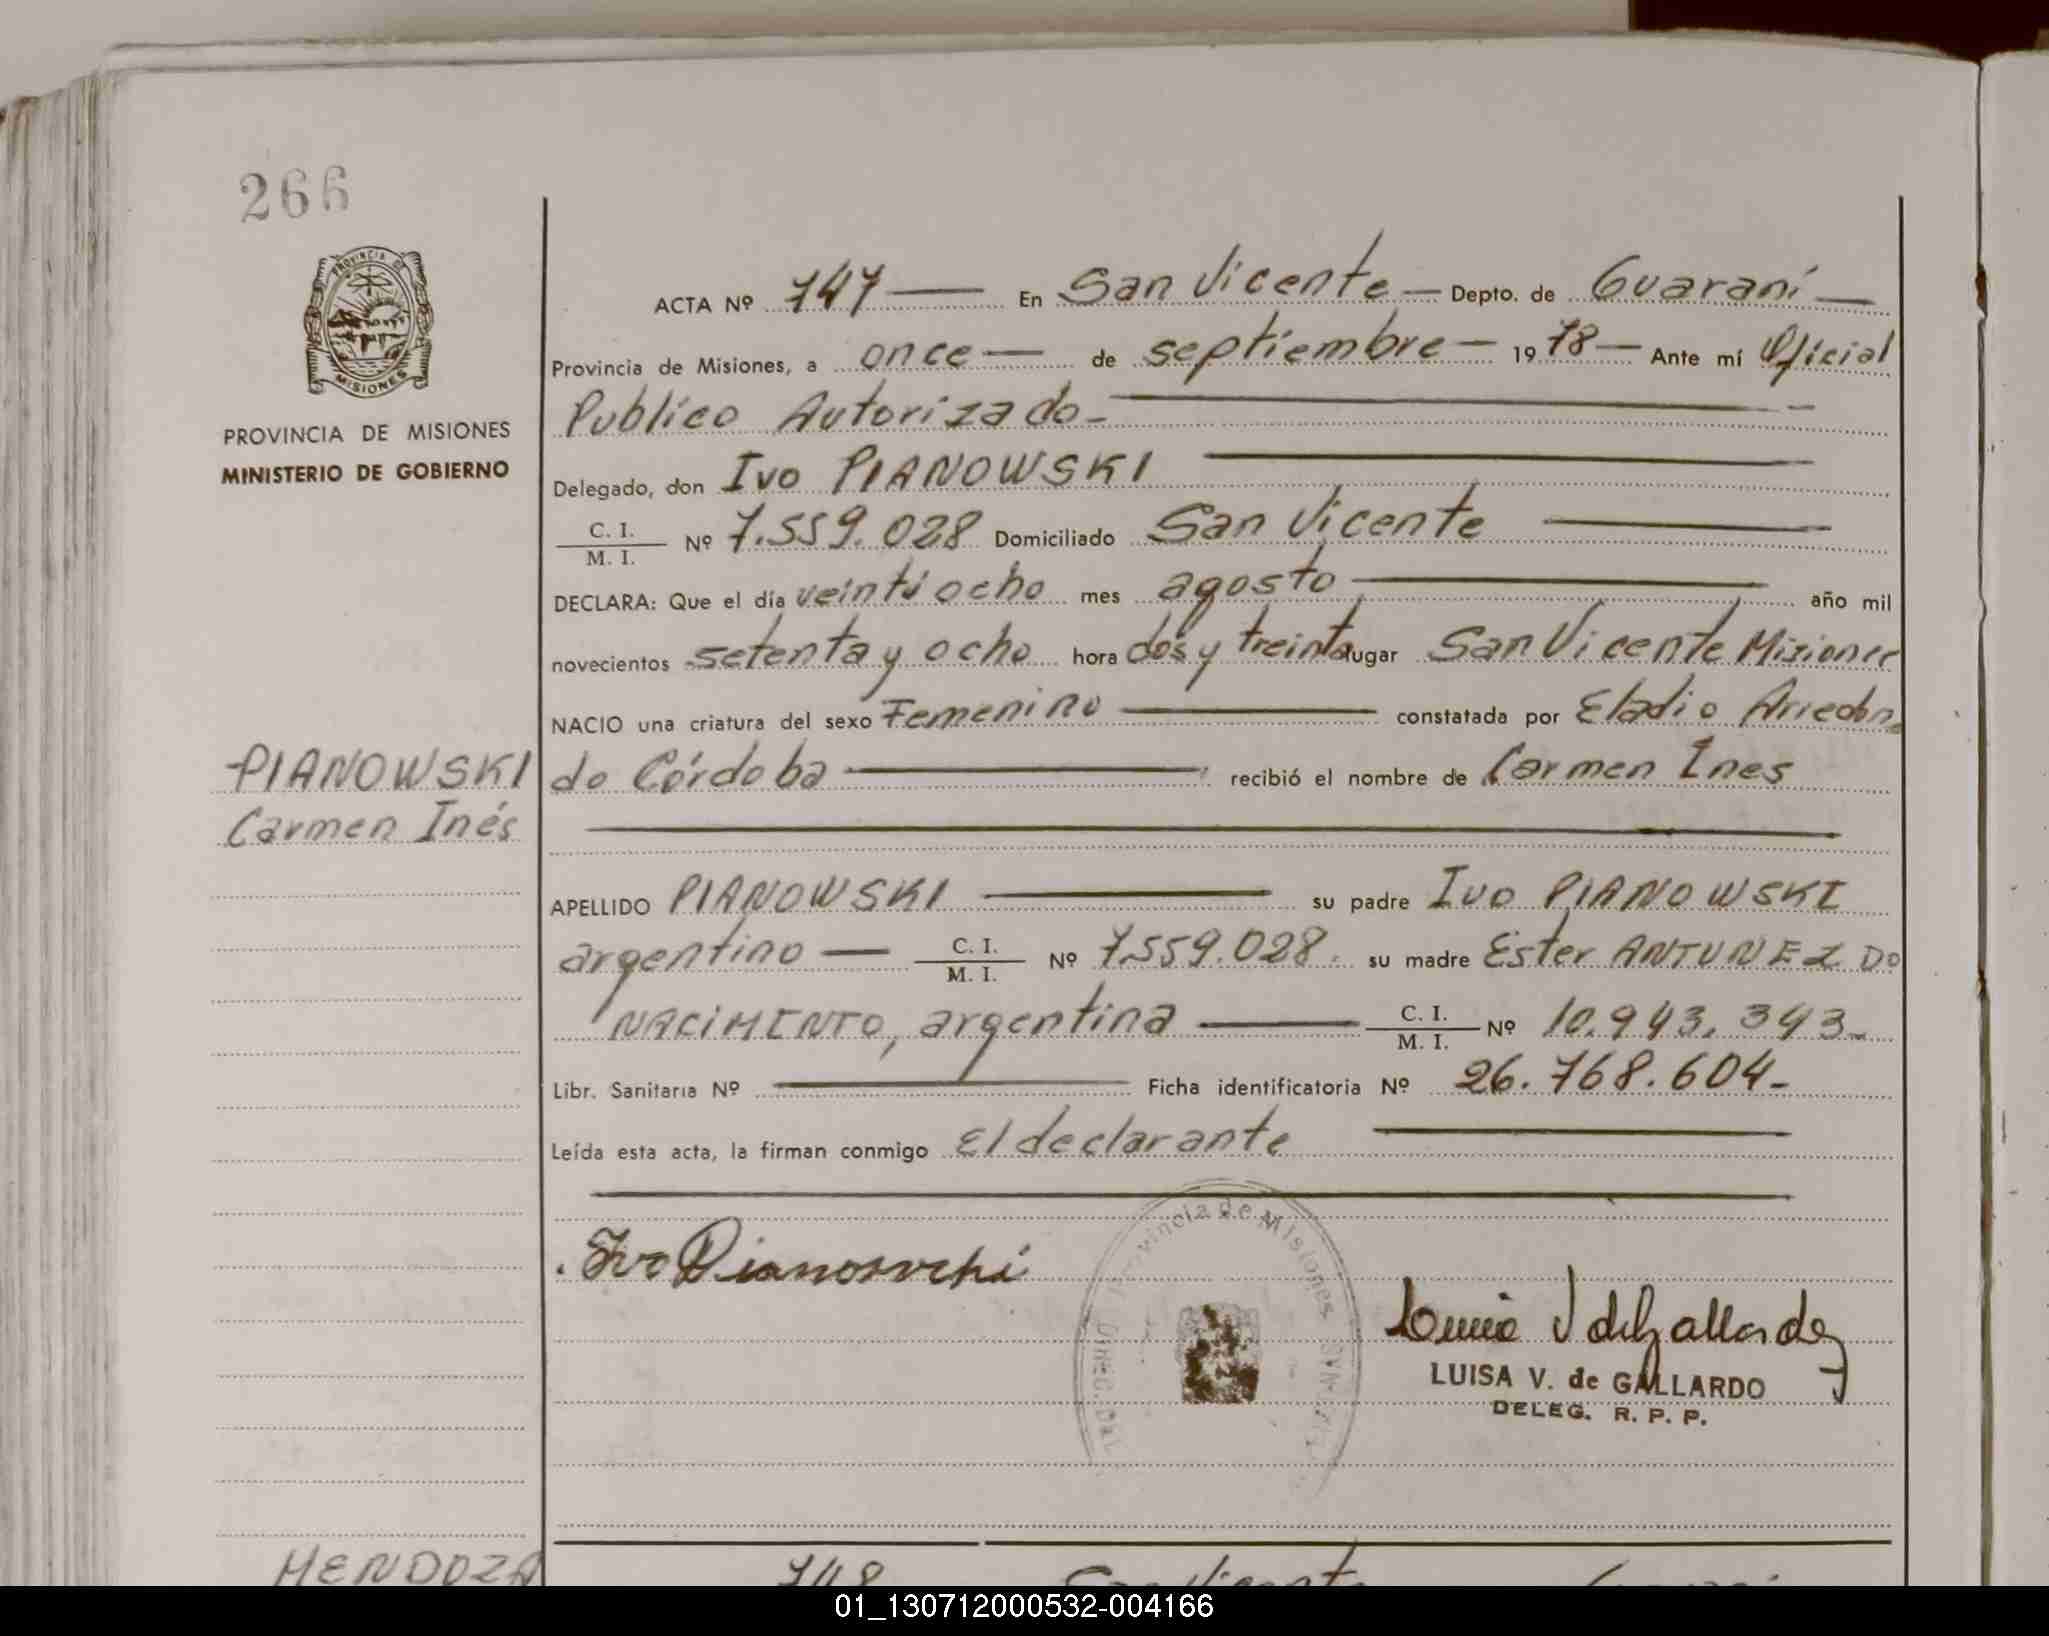 266
PROVINCIA DE
MISIONES
PROVINCIA DE MISIONES
MINISTERIO DE GOBIERNO
PIANOWSKI
Carmen Inés
ACTA Nº 747 En San Vicente Depto. de Guaraní
Provincia de Misiones, a once de septiembre 1978 Ante mí Oficial
Publico Autorizado
Delegado, don Ivo PIANOWSKI
C. I.
M. I. Nº 7.559.028 Domiciliado San Vicente
DECLARA: Que el día veintiocho mes agosto año mil
novecientos setenta y ocho hora dos y treinta lugar San Vicente Misiones
NACIO una criatura del sexo Femenino constatada por Eladio Arredon
do Córdoba recibió el nombre de Carmen Ines
APELLIDO PIANOWSKI su padre Ivo PIANOWSKI
argentino C. I.
M. I. Nº 7.559.028. su madre Ester ANTUNEZ DO
NACIMENTO, argentina C. I.
M. I. Nº 10.943.343
Libr. Sanitaria Nº Ficha identificatoria Nº 26.768.604
Leída esta acta, la firman conmigo El declarante
Provincia de Misiones
Ivo Pianowski
Luisa V de Gallardo
LUISA V. de GALLARDO
DELEG. R. P. P.
MENDOZA 748 San Vicente
01_130712000532-004166